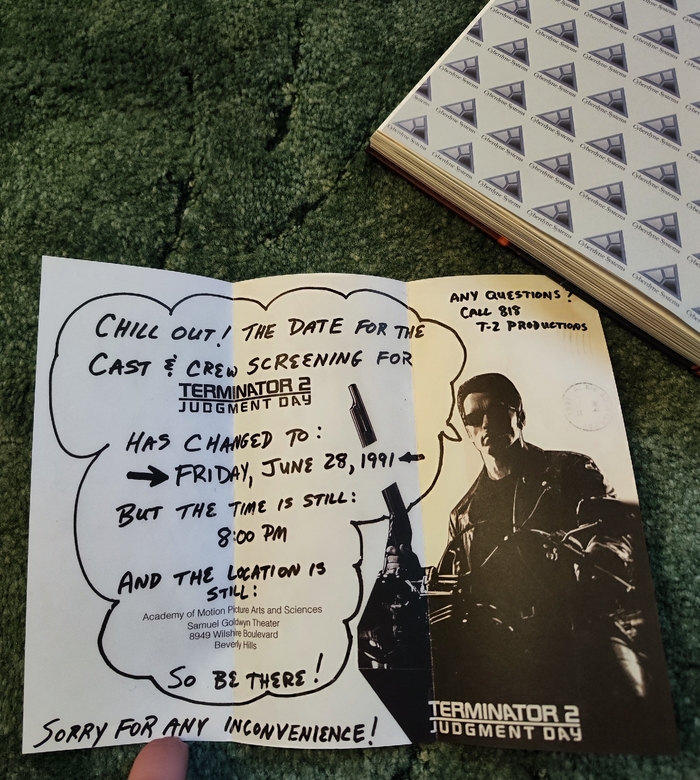 CHILL OUT! THE DATE FOR THE
CAST & CREW SCREENING FOR
TERMINATOR 2
JUDGMENT DAY
HAS CHANGED TO:
FRIDAY, JUNE 28, 1991
BUT THE TIME IS STILL:
8:00 PM
AND THE LOCATION IS
STILL:
Academy of Motion Picture Arts and Sciences
Samuel Goldwyn Theater
8949 Wilshire Boulevard
Beverly Hills
SO BE THERE!
SORRY FOR ANY INCONVENIENCE!
ANY QUESTIONS?
CALL 818
T-2 PRODUCTIONS
TERMINATOR 2
JUDGMENT DAY
Cyberdyne Systems